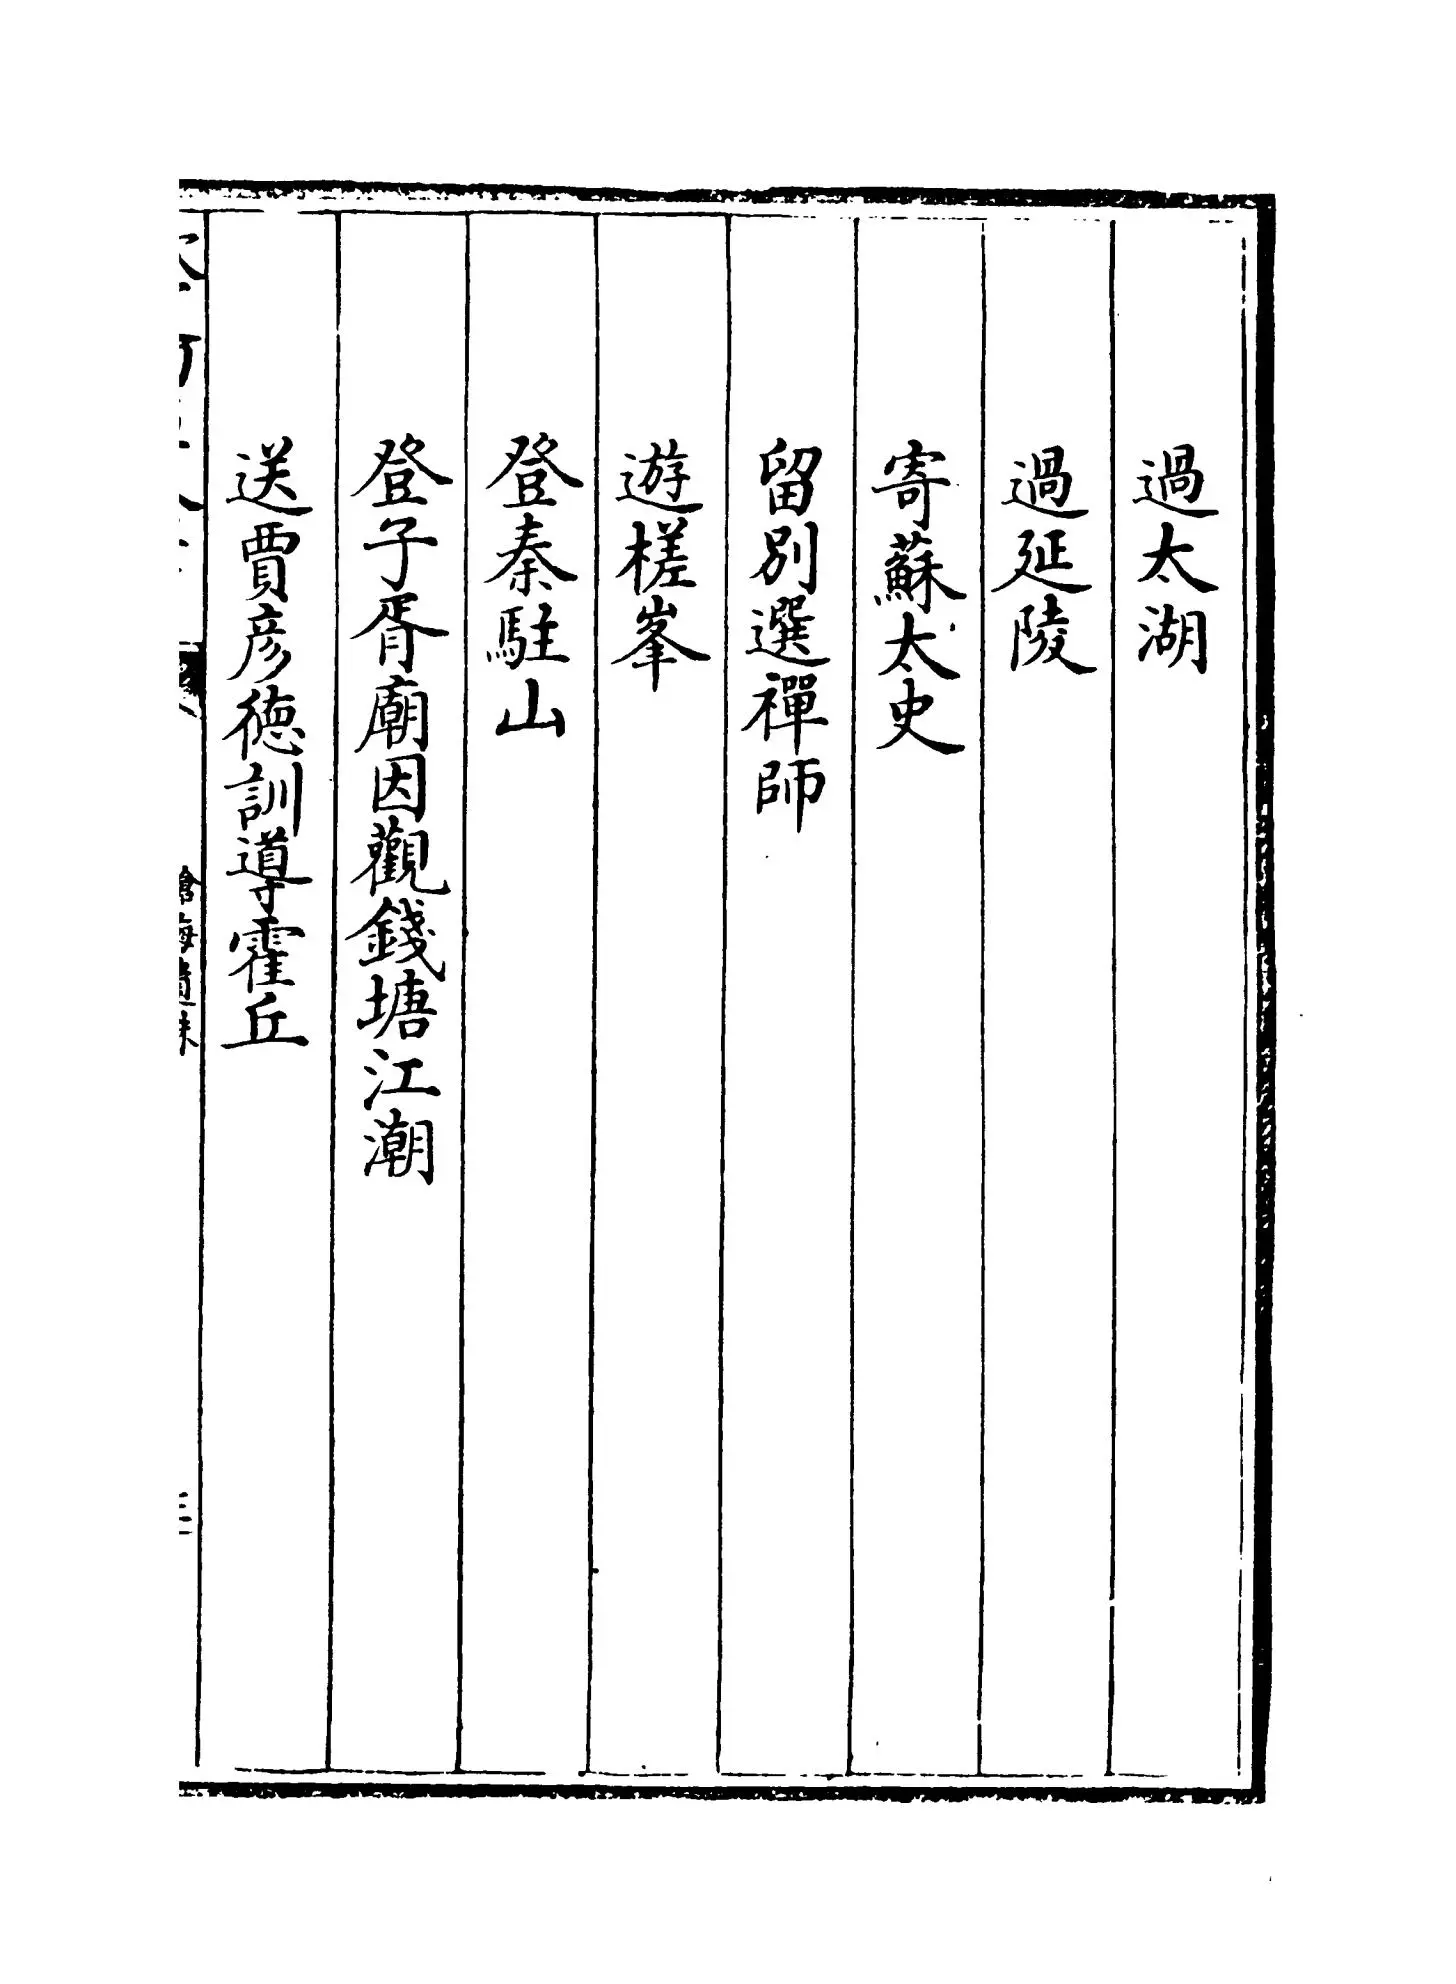 過太湖
過延陵
寄蘇太史
留別選禪師
遊槎峯
登秦駐山
登子胥廟因觀錢塘江潮
送賈彦德訓導霍丘
三